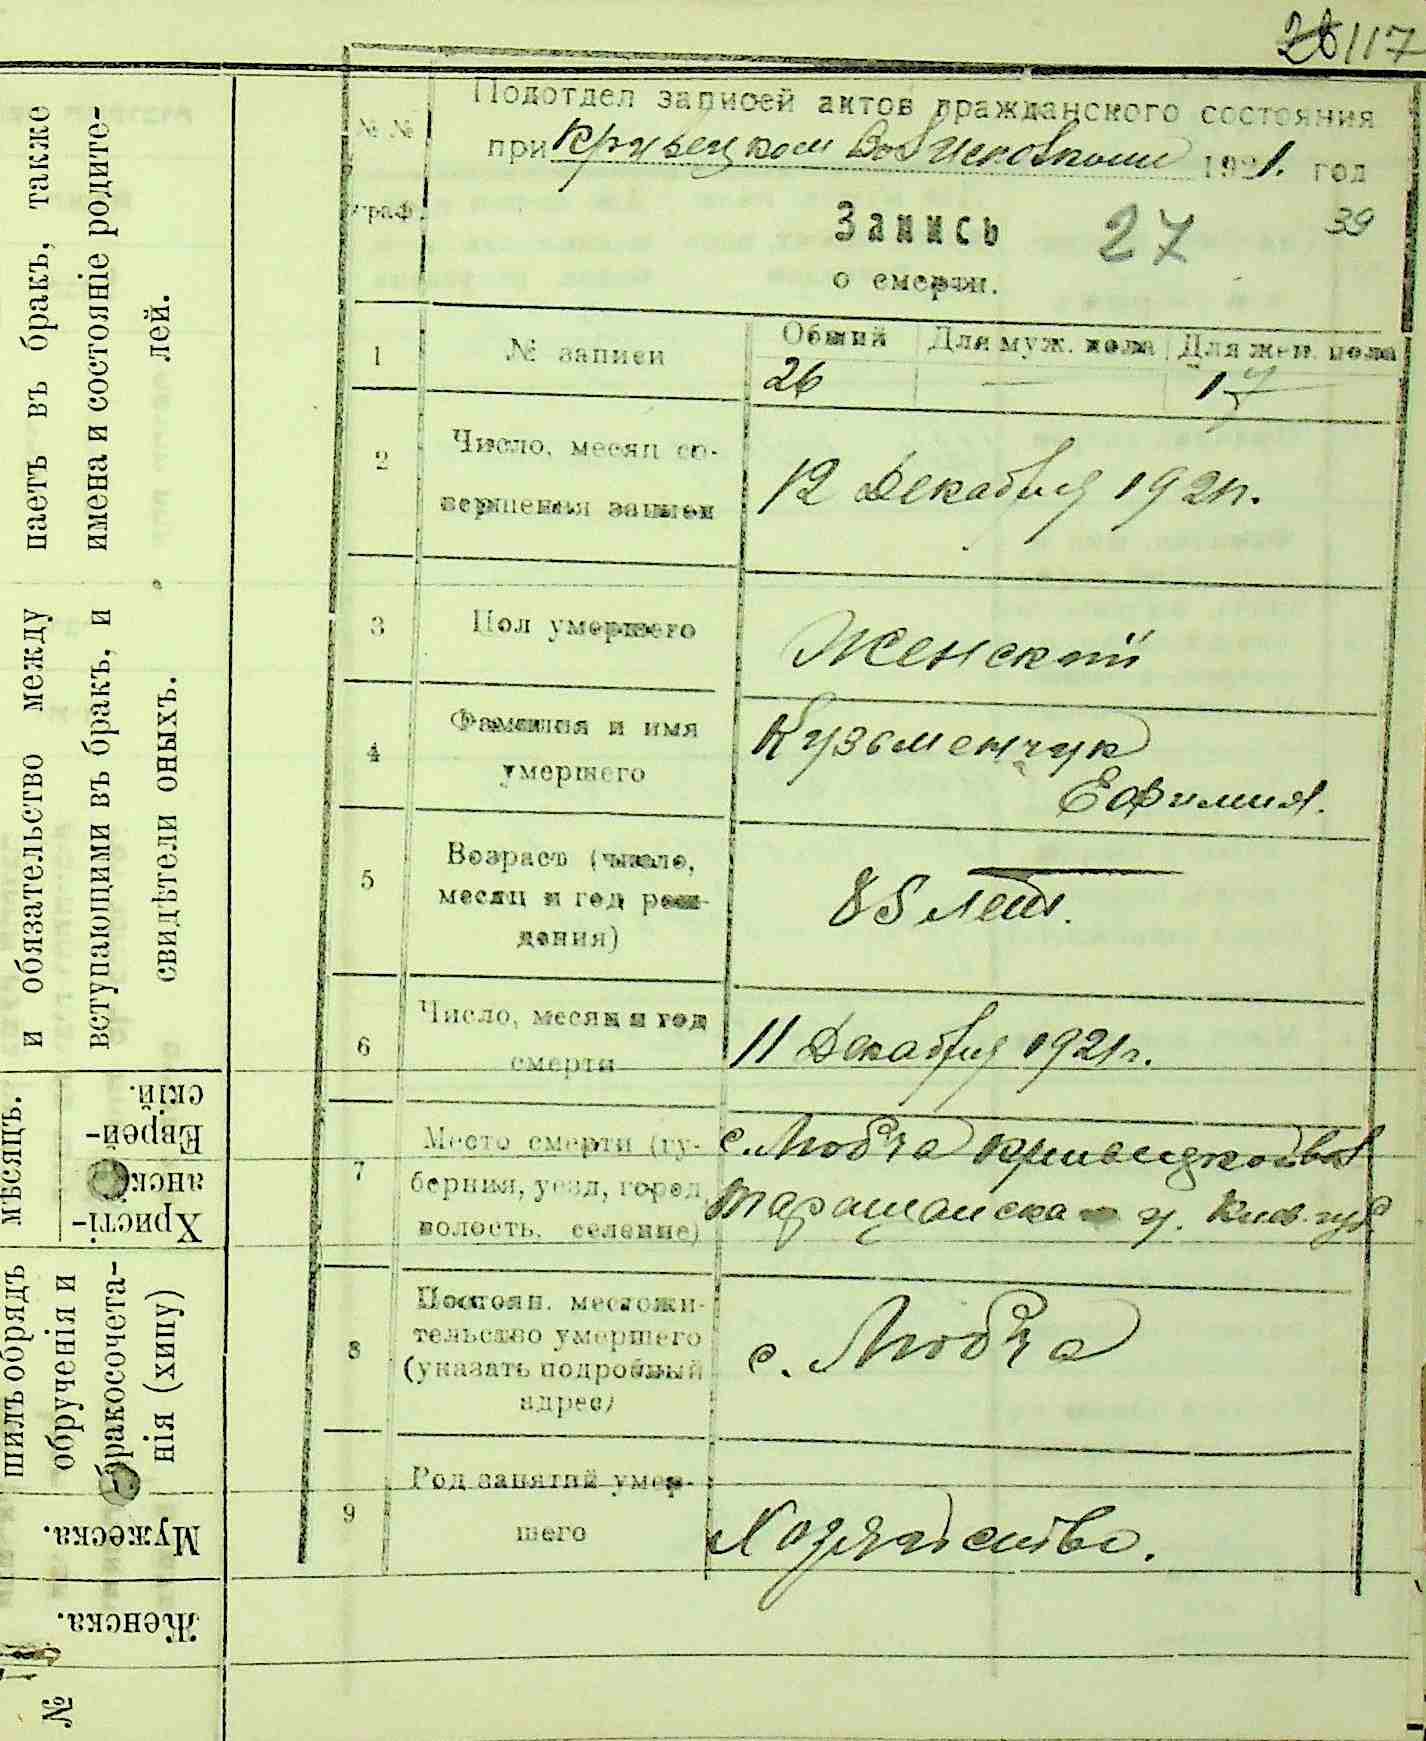 117
Подотдел записей актов гражданского состояния
при Кривецком Вол Исполкоме 1921. год
№№ граф.
Запись 27 39
о смерти.
1 № записи Общий Для муж. пола Для жен. пола
26 — 17
2 Число, месяц со-
вершенья записи 12 Декабря 1921 г.
3 Пол умершего Женский
4 Фамилия и имя
умершего Кузьменчук
Ефимия.
5 Возраст (число,
месяц и год рож-
дения) 85 лет.
6 Число, месяц и год
смерти 11 Декабря 1921 г.
7 Место смерти (гу-
берния, уезд, город,
волость, селение) с. Любча Кривецкой вол
Таращанска у. Киев. губ
8 Постоян. местожи-
тельство умершего
(указать подробный
адрес) с. Любча
9 Род занятий умер-
шего Хозяйство.
паетъ въ бракъ, также
имена и состояніе родите-
лей.
и обязательство между
вступающими въ бракъ, и
свидѣтели оныхъ.
мѣсяцъ.
Христі-
анскій
Еврей-
скій.
шилъ обрядъ
обрученія и
бракосочета-
нія (хипу)
Мужеска.
Женска.
№